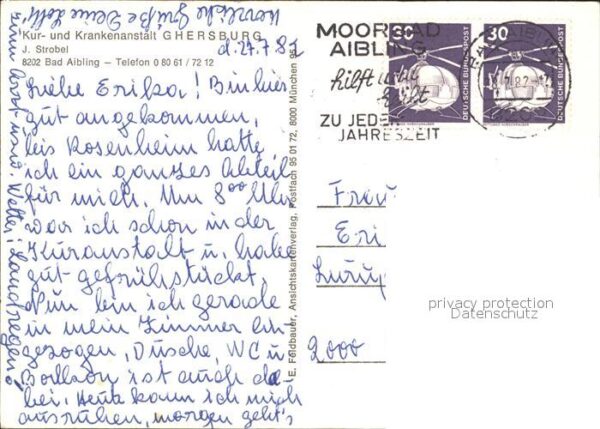 Kur- und Krankenanstalt GHERSBURG
J. Strobel
8202 Bad Aibling — Telefon 0 80 61 / 72 12
d. 27.7.82
Liebe Erika! Bin hier
gut angekommen,
bis Rosenheim hatte
ich ein ganzes Abteil
für mich. Um 8⁰⁰ Uhr
war ich schon in der
Kuranstalt u. habe
gut gefrühstückt.
Nun bin ich gerade
in mein Zimmer ein-
gezogen, Dusche, WC u
Balkon ist auch da-
bei. Heute kann ich mich
ausruhen, morgen geht's
los! Wetter: Landregen!
Herzliche Grüße Deine
E. Feldbauer, Ansichtskartenverlag, Postfach 95 01 72, 8000 München 95
MOORBAD
AIBLING
hilft und
heilt
ZU JEDER
JAHRESZEIT
30
DEUTSCHE BUNDESPOST
30
DEUTSCHE BUNDESPOST
Frau
Eri
Luru
2000
privacy protection
Datenschutz